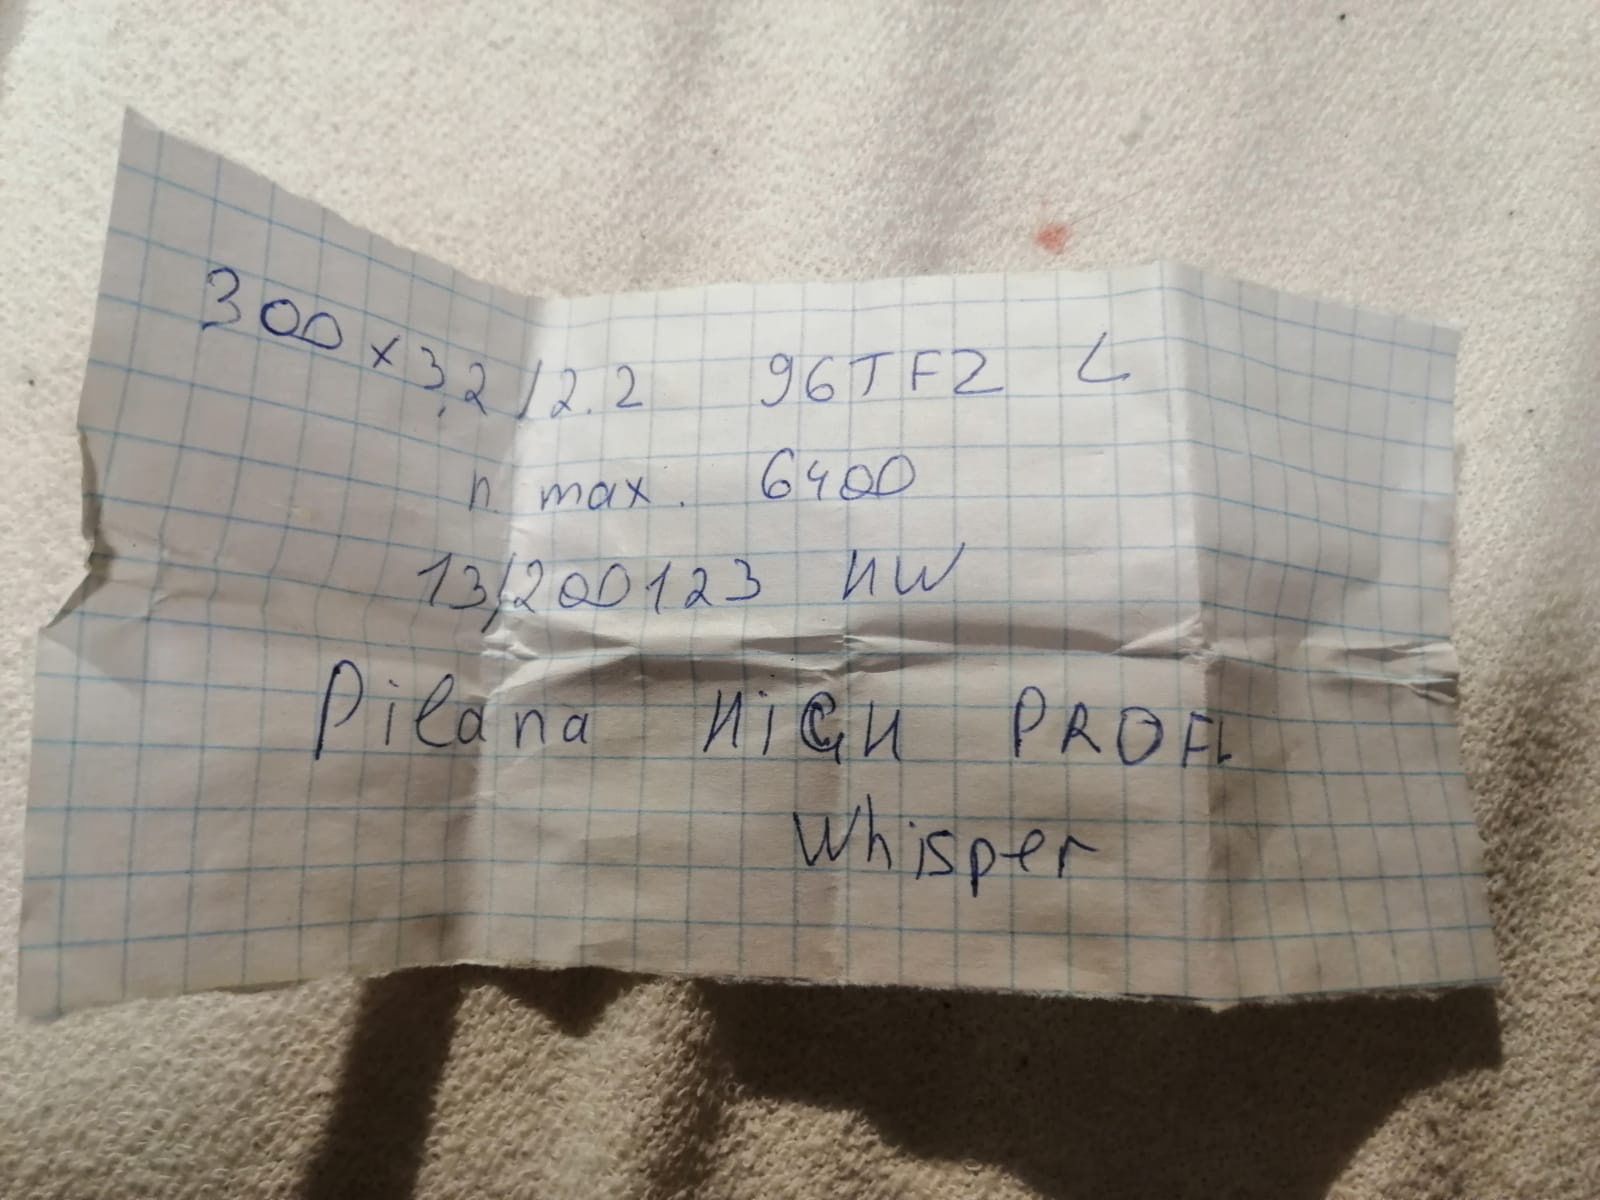 300 x 3,2 / 2.2 96TFZ L
n max. 6400
13/200123 HW
Pilana HIGH PROFI
Whisper